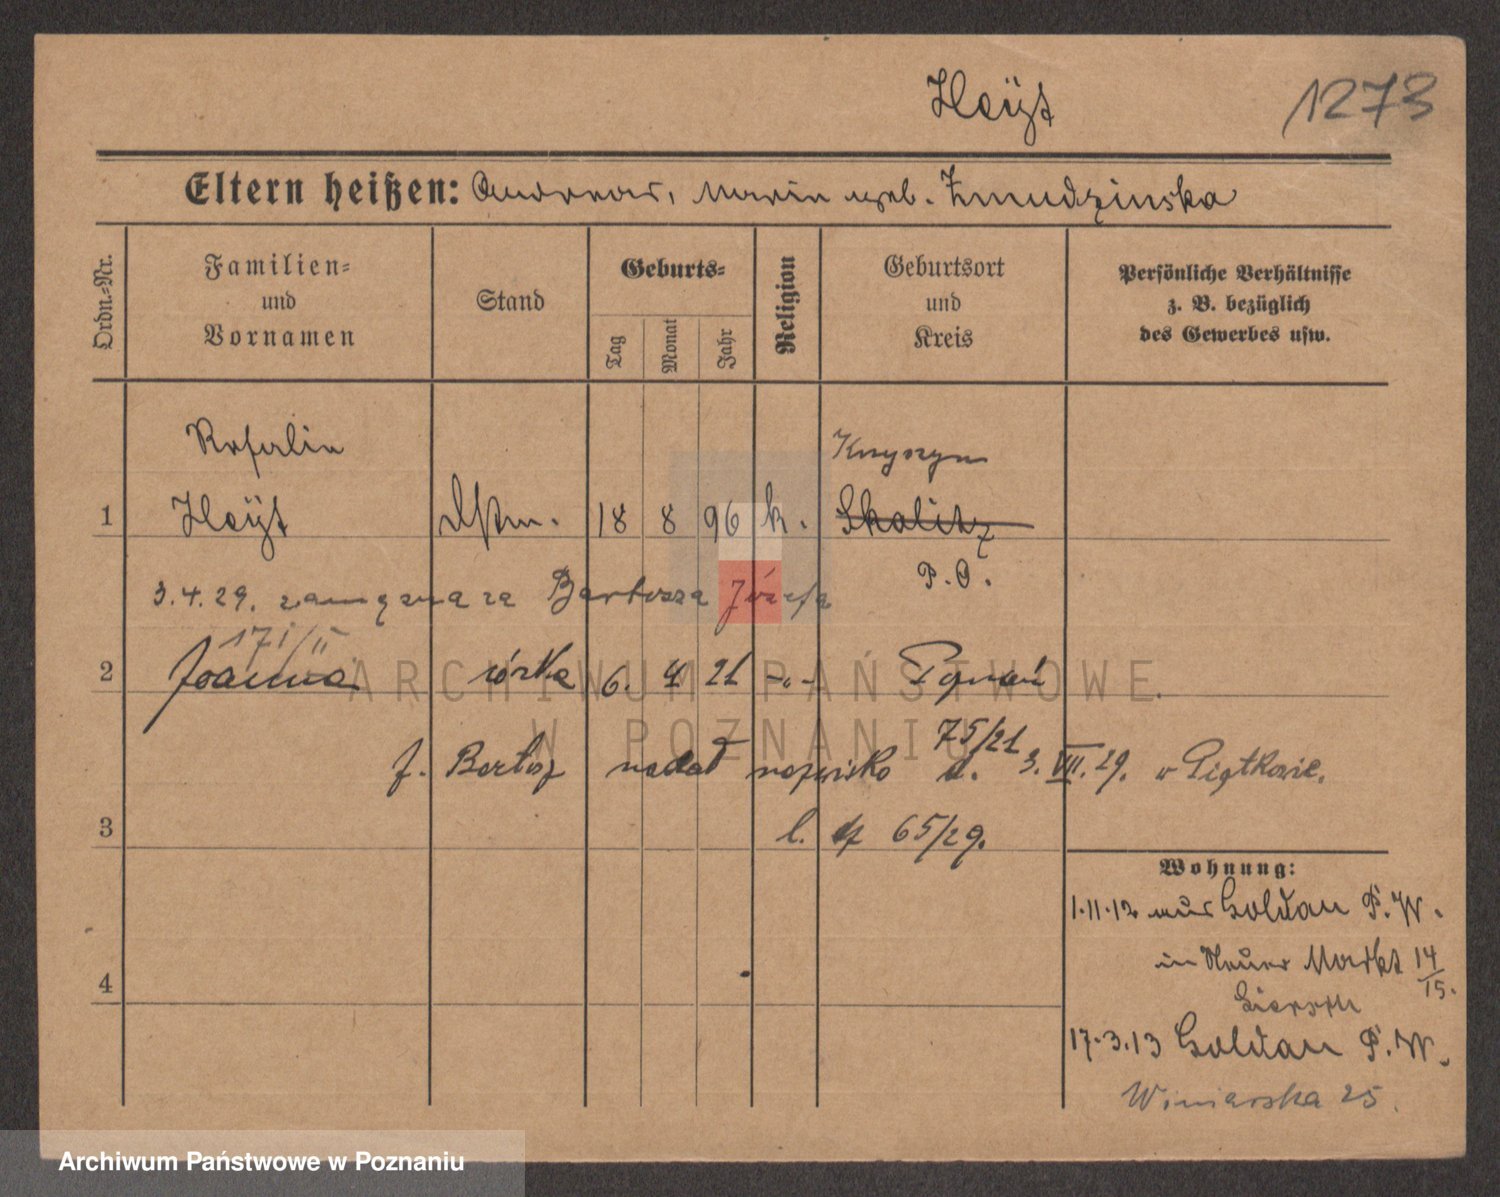 Heÿt 1273
Eltern heißen: Andreas, Maria geb. Zmudzinska
Ordn.-Nr.
Familien-
und
Vornamen
Stand
Geburts-
Tag
Monat
Jahr
Religion
Geburtsort
und
Kreis
Persönliche Verhältnisse
z. B. bezüglich
des Gewerbes usw.
Rosalie Knyszyn
1 Heÿt Dstm. 18 8 96 k. Skalitz
P. O.
3.4.29. zamężna za Bartosza Józefa
171/II
2 Joanna córka 6. 4 21 -„- Poznań
75/21
J. Bartosz nadał nazwisko d. 3. VII. 29. w Piątkowie.
3 l. 65/29.
Wohnung:
1.11.12 aus Soldau P. W.
in Neuer Markt 14/15.
17.3.13 Soldau P. W.
4
Winiarska 25.
ARCHIWUM PAŃSTWOWE
W POZNANIU
Archiwum Państwowe w Poznaniu